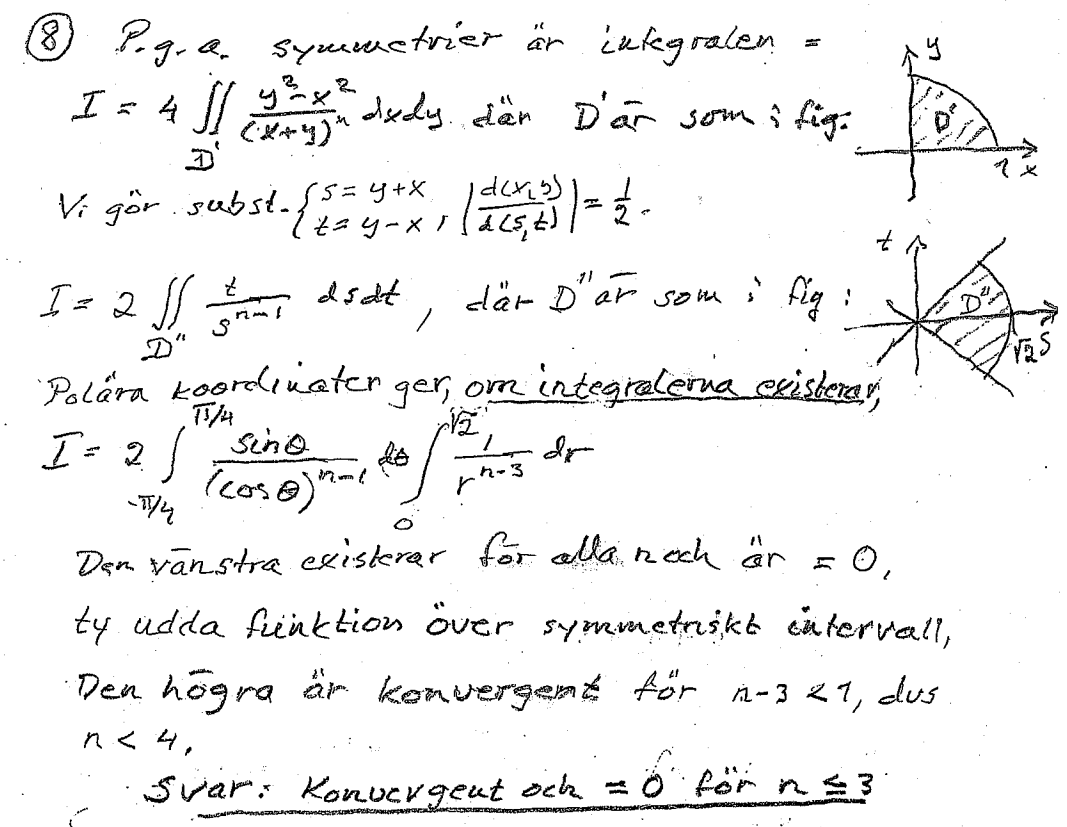 ⑧ P.g.a. symmetrier är integralen =
I = 4 ∬_{D'} (y²-x²)/(x+y)ⁿ dxdy där D' är som i fig.
y
D'
1 x
Vi gör subst. { s = y+x, t = y-x , |d(x,y)/d(s,t)| = 1/2.
I = 2 ∬_{D''} t/s^{n-1} dsdt , där D'' är som i fig:
t
D''
√2 s
Polära koordinater ger, om integralerna existerar,
I = 2 ∫_{-π/4}^{π/4} sinθ/(cosθ)^{n-1} dθ ∫_0^{√2} 1/r^{n-3} dr
Den vänstra existerar för alla n och är = 0,
ty udda funktion över symmetriskt intervall,
Den högra är konvergent för n-3 < 1, dvs
n < 4.
Svar: Konvergent och = 0 för n ≤ 3